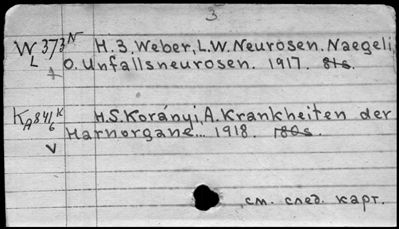 3
W 373 N H. 3. Weber, L.W. Neurosen. Naegeli,
L O. Unfallsneurosen. 1917. 81s.
KA 841 K H.S. Korányi, A. Krankheiten der
6 Harnorgane... 1918. 180s.
V
см. след. карт.